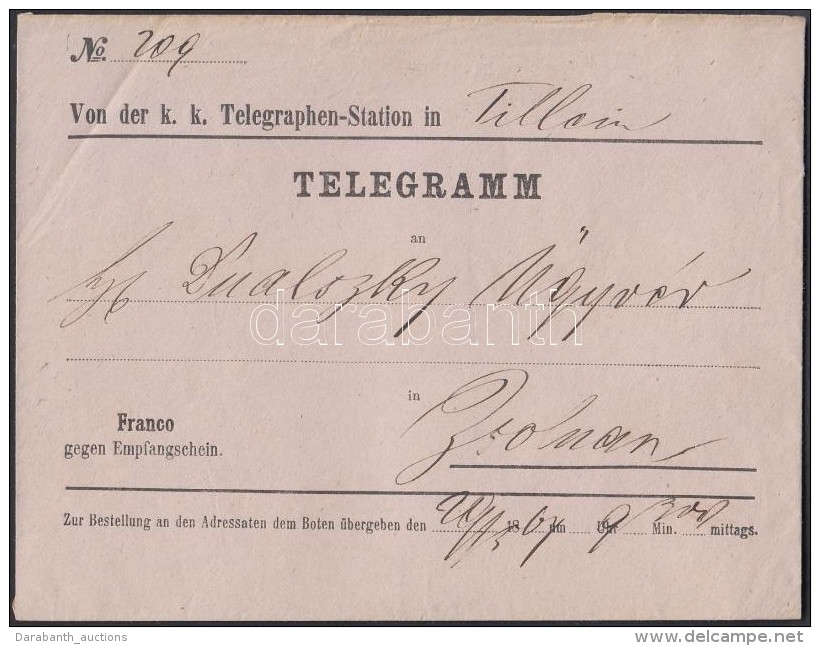 No. 209
Von der k. k. Telegraphen-Station in Sillein
TELEGRAMM
an
darabanth
in
Franco
gegen Empfangschein.
Zur Bestellung an den Adressaten dem Boten übergeben den 18 67 um Uhr 9 Min. mittags.
Darabanth_auctions
delcampe.net